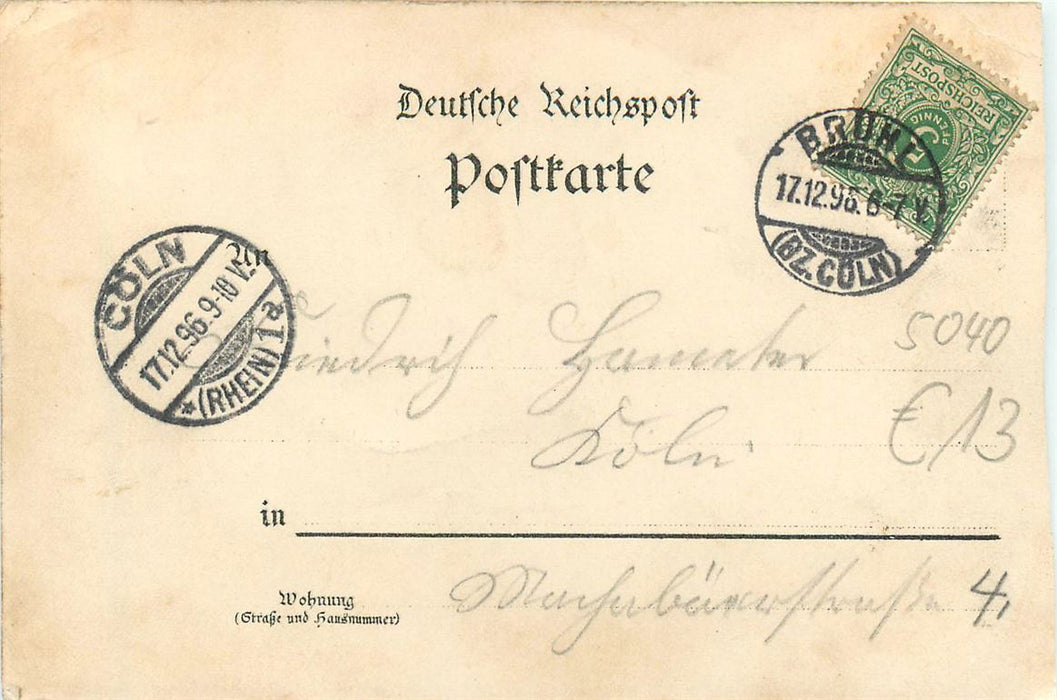 Deutsche Reichspost
Postkarte
REICHSPOST
5
PFENNIG
BRÜHL
17.12.96. 6-7 V.
(BZ. CÖLN)
CÖLN
17.12.96. 9-10 V.
*(RHEIN) 1 e
An
Friedrich Hameter
5040
Köln
€ 13
in
Wohnung
(Straße und Hausnummer)
Machabäerstraße 4,